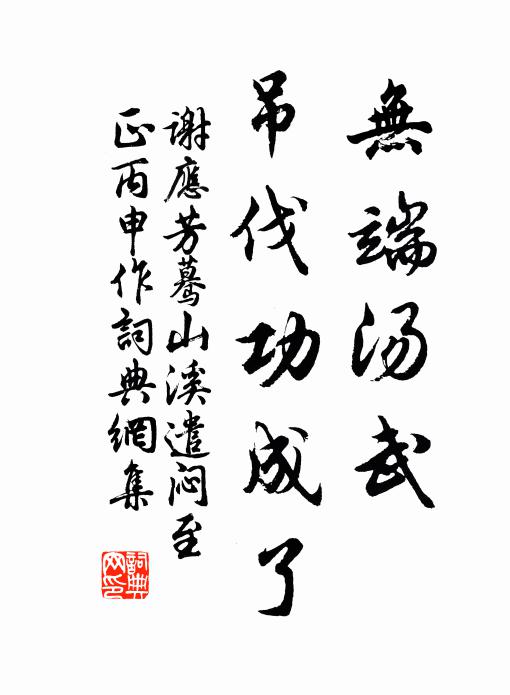 無端湯武
吊伐功成了
謝應芳驀山溪遣闷至
正丙申作詞典網集
詞典
网印